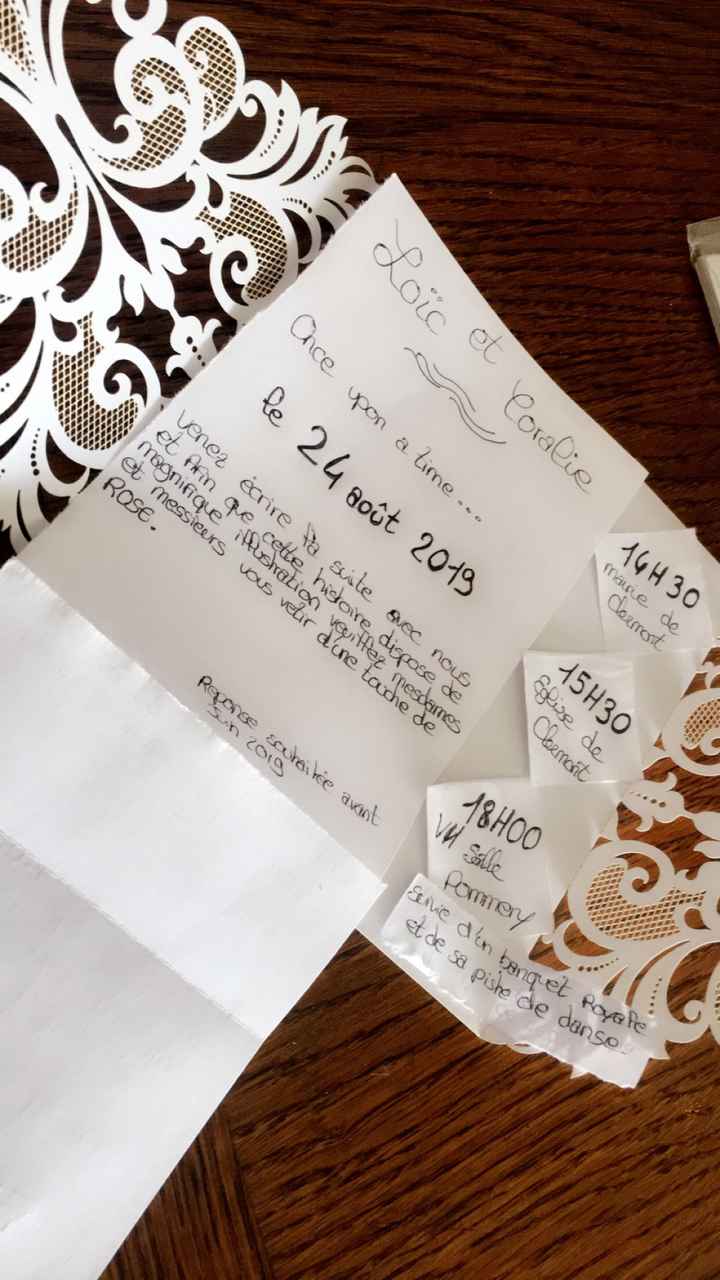 Loïc et Coralie
Once upon a time...
le 24 août 2019
Venez écrire la suite avec nous
et Afin que cette histoire dispose de
magnifique illustration veuillez mesdames
et messieurs vous vetir d'une touche de
ROSE.
Réponse souhaitée avant
Juin 2019
14H30
mairie de
Clermont
15H30
Eglise de
Clermont
18H00
VH Salle
Pommery
suivie d'un banquet Royale
et de sa piste de danse